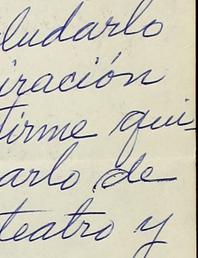 ludarlo
iración
firme qui-
arlo de
teatro y